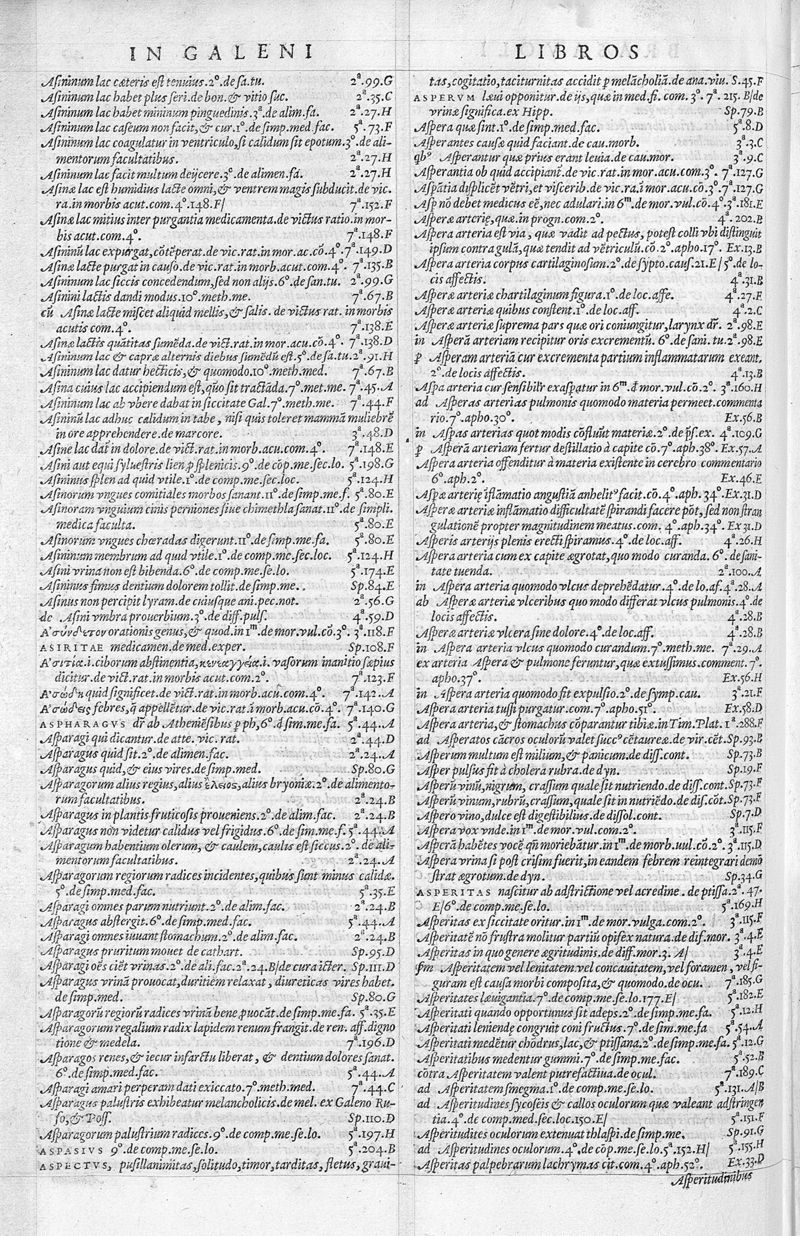 IN GALENI
Asininum lac cæteris est tenuius.2º.de sa.tu. 2ª.99.G
Asininum lac habet plus seri.de bon.& vitio suc. 2ª.35.C
Asininum lac habet minimum pinguedinis.3º.de alim.fa. 2ª.27.H
Asininum lac caseum non facit,& cur.1º.de simp.med.fac. 5ª.73.F
Asininum lac coagulatur in ventriculo,si calidum sit epotum.3º.de ali-
mentorum facultatibus. 2ª.27.H
Asininum lac facit multum deijcere.3º.de alimen.fa. 2ª.27.H
Asinæ lac est humidius lacte omni,& ventrem magis subducit.de vic.
ra.in morbis acut.com.4º.148.F/ 7ª.152.F
Asinæ lac mitius inter purgantia medicamenta.de victus ratio.in mor-
bis acut.com.4º. 7ª.148.F
Asininũ lac expurgat,cõtẽperat.de vic.rat.in mor.ac.cõ.4º.7ª.149.D
Asinæ lacte purgat in causo.de vic.rat.in morb.acut.com.4º. 7ª.135.B
Asininum lac siccis concedendum,sed non alijs.6º.de san.tu. 2ª.99.G
Asinini lactis dandi modus.10º.meth.me. 7ª.67.B
cũ Asinæ lacte miscet aliquid mellis,& salis.de victus rat.in morbis
acutis com.4º. 7ª.138.E
Asinæ lactis quãtitas sumẽda.de vict.rat.in mor.acu.cõ.4º. 7ª.138.D
Asininum lac & capræ alternis diebus sumẽdũ est.5º.de sa.tu.2ª.91.H
Asininum lac datur hecticis,& quomodo.10º.meth.med. 7ª.67.B
Asina cuius lac accipiendum est,quo sit tractãda.7º.met.me. 7ª.45.A
Asininum lac ab vbere dabat in siccitate Gal.7º.meth.me. 7ª.44.F
Asininũ lac adhuc calidum in tabe, nisi quis toleret mammã muliebrẽ
in ore apprehendere.de marcore. 3ª.48.D
Asine lac dat̃ in dolore.de vict.rat.in morb.acu.com.4º. 7ª.148.E
Asini aut equi syluestris lien p splenicis.9º.de cõp.me.sec.lo. 5ª.198.G
Asininus splen ad quid vtile.1º.de comp.me.sec.loc. 5ª.124.H
Asinorum vngues comitiales morbos sanant.11º.de simp.me.f. 5ª.80.E
Asinoram vnguium cinis perniones siue chimethla sanat.11º.de simpli.
medica faculta. 5ª.80.E
Asinorum vngues chœradas digerunt.11º.de simp.me.fa. 5ª.80.E
Asininum membrum ad quod vtile.1º.de comp.me.sec.loc. 5ª.124.H
Asini vrina non est bibenda.6º.de comp.me.se.lo. 5ª.174.E
Asininus fimus dentium dolorem tollit.de simp.me.. Sp.84.E
Asinus non percipit lyram.de cuiusque ani.pec.not. 2ª.56.G
de Asini vmbra prouerbium.3º.de diff.puls. 4ª.59.D
Ἀσύνδετον orationis genus,& quod.in 1ᵐ.de mor.vul.cõ.3º. 3ª.118.F
ASIRITAE medicamen.de med.exper. Sp.108.F
Ἀσιτία.i.ciborum abstinentia,κεναγγεία.i. vasorum inanitio sæpius
dicitur.de vict.rat.in morbis acut.com.2º. 7ª.123.F
Ἀσώδη quid significet.de vict.rat.in morb.acu.com.4º. 7ª.142.A
Ἀσώδεις febres,q̃ appellẽtur.de vict.rat.in morb.acu.com.4º. 7ª.140.G
ASPHARAGVS dr̃ ab Atheniẽsibus p ph,6º.d simp.me.fa. 5ª.44.A
Asparagi qui dicantur.de atte.vic.rat. 2ª.44.D
Asparagus quid sit.2º.de alimen.fac. 2ª.24.A
Asparagus quid,& eius vires.de simp.med. Sp.80.G
Asparagorum alius regius,alius ἕλειος,alius bryoniæ.2º.de alimento-
rum facultatibus. 2ª.24.B
Asparagus in plantis fruticosis proueniens.2º.de alim.fac. 2ª.24.B
Asparagus nõn videtur calidus vel frigidus.6º.de sim.me.f. 5ª.44.A
Asparagum habentium olerum, & caulem,caulus est siccus.2º.de ali-
mentorum facultatibus. 2ª.24.A
Asparagorum regiorum radices incidentes,quibus sunt minus calidæ.
5º.de simp.med.fac. 5ª.35.E
Asparagi omnes parum nutriunt.2º.de alim.fac. 2ª.24.B
Asparagus abstergit.6º.de simp.med.fac. 5ª.44.A
Asparagi omnes iuuant stomachum.2º.de alim.fac. 2ª.24.B
Asparagus pruritum mouet de cathart. Sp.95.D
Asparagi oẽs ciẽt vrinas.2º.de ali.fac.2ª.24.B/de cura icter. Sp.111.D
Asparagus vrinã prouocat,duritiẽm relaxat, diureticas vires habet.
de simp.med. Sp.80.G
Asparagorũ regiorũ radices vrinã bene puocãt.de simp.me.fa. 5ª.35.E
Asparagorum regalium radix lapidem renum frangit.de ren. aff.digno
tione & medela. 7ª.196.D
Asparagos renes,& iecur infarctu liberat, & dentium dolores sanat.
6º.de simp.med.fac. 5ª.44.A
Asparagi amari perperam dati exiccato.7º.meth.med. 7ª.44.C
Asparagus palustris exhibeatur melancholicis.de mel. ex Galeno Ru-
fo,& Poss. Sp.110.D
Asparagorum palustrium radices.9º.de comp.me.se.lo. 5ª.197.H
ASPASIVS 9º.de comp.me.se.lo. 5ª.204.B
ASPECTVS, pusillanimitas,solitudo,timor,tarditas, fletus, graui-
LIBROS
tas,cogitatio,taciturnitas accidit p melãcholiã.de ana.viu. S.45.F
ASPERVM læui opponitur.de ijs,quæ in med.fi. com. 3º. 7ª. 215. B/de
vrinæ significa.ex Hipp. Sp.79.B
Aspera quæ sint.1º.de simp.med.fac. 5ª.8.D
Asperantes causæ quid faciant.de cau.morb. 3ª.3.C
qbº Asperantur quæ prius erant leuia.de cau.mor. 3ª.9.C
Asperantia ob quid accipiant̃.de vic.rat in mor.acu.com.3º. 7ª.127.G
Aspãtia displicẽt vẽtri,et viscerib.de vic.ra.ĩ mor.acu.cõ.3º.7ª.127.G
Asp nõ debet medicus eẽ,nec adulari.in 6ᵐ.de mor.vul.cõ.4º.3ª.181.E
Asperæ arterię,quæ.in progn.com.2º. 4ª.202.B
Aspera arteria est via, quæ vadit ad pectus, potest colli vbi distinguit
ipsum contra gulã,quæ tendit ad vẽtriculũ.cõ.2º.apho.17º. Ex.13.B
Aspera arteria corpus cartilaginosum.2º.de sypto.caus.21.E/5º.de lo-
cis affectis. 4ª.31.B
Asperæ arteriæ chartilaginum figura.1º.de loc.affe. 4ª.27.F
Asperæ arteriæ quibus constent.1º.de loc.aff. 4ª.2.C
Asperæ arteriæ suprema pars quæ ori coniungitur,larynx dr̃. 2ª.98.E
in Asperã arteriam recipitur oris excrementũ. 6º.de sani.tu.2ª.98.E
p Asperam arteriã cur excrementa partium inflammatarum exeant.
2º.de locis affectis. 4ª.13.B
Aspa arteria cur sensibilr̃ exaspatur in 6ᵐ.d mor.vul.cõ.2º. 3ª.160.H
ad Asperas arterias pulmonis quomodo materia permeet.commenta
rio.7º.apho.30º. Ex.56.B
in Aspas arterias quot modis cõfluũt materiæ.2º.de p̃s.ex. 4ª.109.G
p Asperã arteriam fertur destillatio à capite cõ.7º.aph.38º. Ex.57.A
Aspera arteria offenditur à materia existente in cerebro commentario
6º.aph.2º. Ex.46.E
Aspæ arterię ĩflãmatio angustiã anhelitº facit.cõ.4º.aph. 34º.Ex.31.D
Asperæ arteriæ inflãmatio difficultatẽ spirandi facere põt, sed non stran
gulationẽ propter magnitudinem meatus.com. 4º.aph.34º. Ex 31.D
Asperis arterijs plenis erecti spiramus.4º.de loc.aff. 4ª.26.H
Aspera arteria cum ex capite ægrotat, quo modo curanda. 6º.de sani-
tate tuenda. 2ª.100.A
in Aspera arteria quomodo vlcus deprehẽdatur.4º.de lo.af.4ª.28.A
ab Asperæ arteriæ vlceribus quo modo differat vlcus pulmonis.4º.de
locis affectis. 4ª.28.B
Asperæ arteriæ vlcera sine dolore.4º.de loc.aff. 4ª.28.B
in Aspera arteria vlcus quomodo curandum.7º.meth.me. 7ª.29.A
ex arteria Aspera & pulmone feruntur,quæ extussimus.comment.7º.
apho.37º. Ex.56.H
in Aspera arteria quomodo fit expulsio.2º.de symp.cau. 3ª.21.F
Aspera arteria tussi purgatur.com.7º.apho.51º. Ex.58.D
Aspera arteria,& stomachus cõparantur tibiæ.in Tim.Plat. 1ª.288.F
ad Asperatos cãcros oculorũ valet succº cẽtaureæ.de vir.cẽt.Sp.93.B
Asperum multum est milium,& panicum.de diss.cont. Sp.73.B
Asper pulsus fit à cholera rubra.de dyn. Sp.19.F
Asperũ vinũ,nigrum, crassum quale sit nutriendo.de diss.cont.Sp.73.F
Asperũ vinum,rubrũ,crassum,quale sit in nutriẽdo.de diss.cõt.Sp.73.F
Aspero vino,dulce est digestibilius.de dissol.cont. Sp.7.D
Aspera vox vnde.in 1ᵐ.de mor.vul.com.2º. 3ª.115.F
Asperã habẽtes vocẽ qñ moriebãtur.in 1ᵐ.de morb.uul.cõ.2º. 3ª.115.D
Aspera vrina si post crisim fuerit,in eandem febrem reintegrari demõ
strat ægrotum.de dyn. Sp.34.G
ASPERITAS nascitur ab adstrictione vel acredine. de ptissa.2ª.47.
E/6º.de comp.me.se.lo. 5ª.169.H
Asperitas ex siccitate oritur.in 1ᵐ.de mor.vulga.com.2º. 3ª.115.F
Asperitatẽ nõ frustra molitur partiũ opifex natura.de dif.mor. 3ª.4.E
Asperitas in quo genere ægritudinis.de diff.mor.3. A/ 3ª.4.E
sm Asperitatem vel lenitatem vel concauitatem,vel foramen, vel fi-
guram est causa morbi composita,& quomodo.de ocu. 7ª.185.G
Asperitates læuigantia.7º.de comp.me.se.lo.177.E/ 5ª.182.E
Asperitati quando opportunus sit adeps.2º.de simp.me.fa. 5ª.12.H
Asperitati leniendę congruit coni fructus.7º.de sim.me.fa 5ª.54.A
Asperitati medẽtur chõdrus,lac,& ptissana.2º.de simp.me.fa.5ª.12.G
Asperitatibus medentur gummi.7º.de simp.me.fac. 5ª.52.B
cõtra Asperitatem valent putrefactiua.de ocul. 7ª.189.C
ad Asperitatem smegma.1º.de comp.me.se.lo. 5ª.131.A/B
ad Asperitudines sycoseis & callos oculorum quæ valeant adstringen
tia.4º.de comp.med.sec.loc.150.E/ 5ª.151.F
Asperitudites oculorum extenuat thlaspi.de simp.me. Sp.91.G
ad Asperitudines oculorum.4º.de cõp.me.se.lo.5ª.152.H/ 5ª.155.H
Asperitas palpebrarum lachrymas cit.com.4º.aph.52º. Ex.33.D
Asperitudinibus